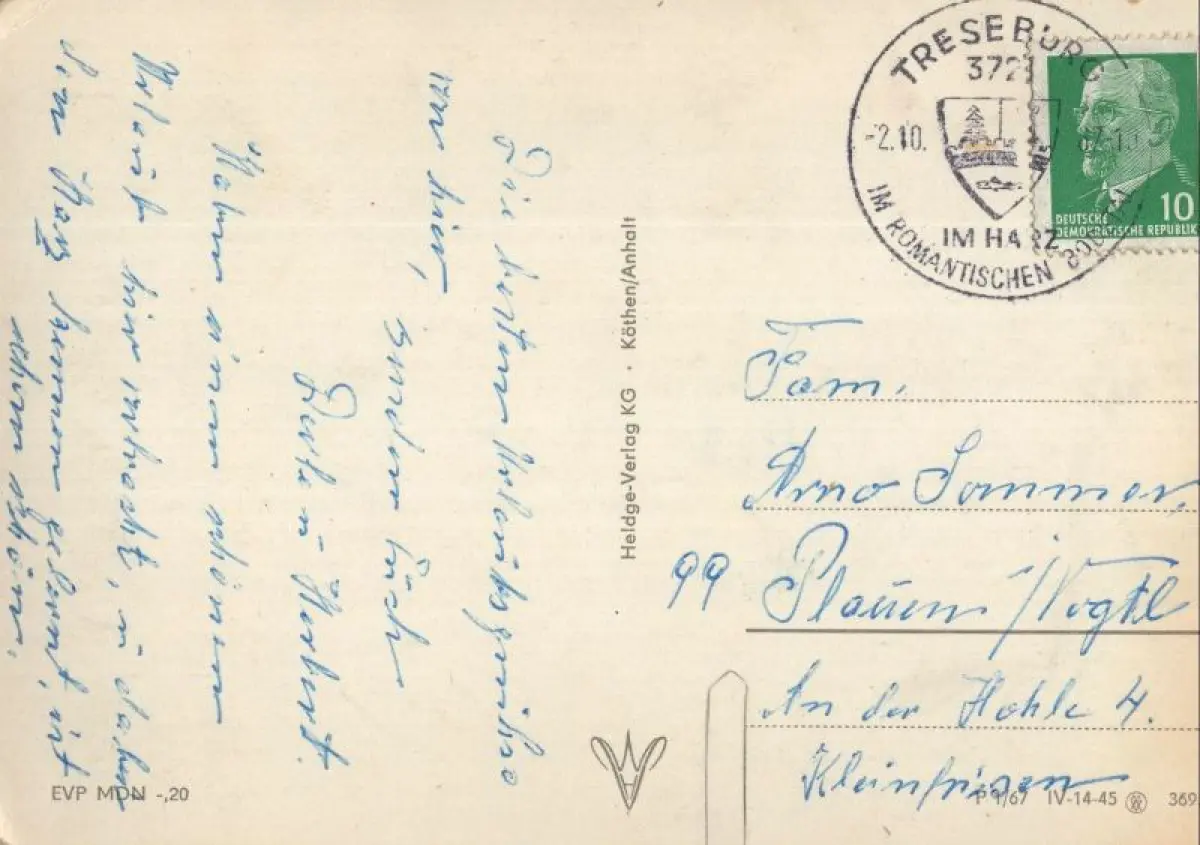 TRESEBURG
3721
-2.10.
IM HARZ
IM ROMANTISCHEN BODETAL
10
DEUTSCHE
DEMOKRATISCHE REPUBLIK
Die besten Urlaubsgrüße
von hier,
senden Euch
u Herbert.
Haben einen schönen
Urlaub hier verbracht, u
den Harz kennen gelernt, ist
schön.
Heldge-Verlag KG · Köthen/Anhalt
Fam.
Arno Sommer,
99 Plauen/Vogtl
An der Hohle 4.
Kleinfriesen
EVP MDN -,20
P 1/67 IV-14-45 369